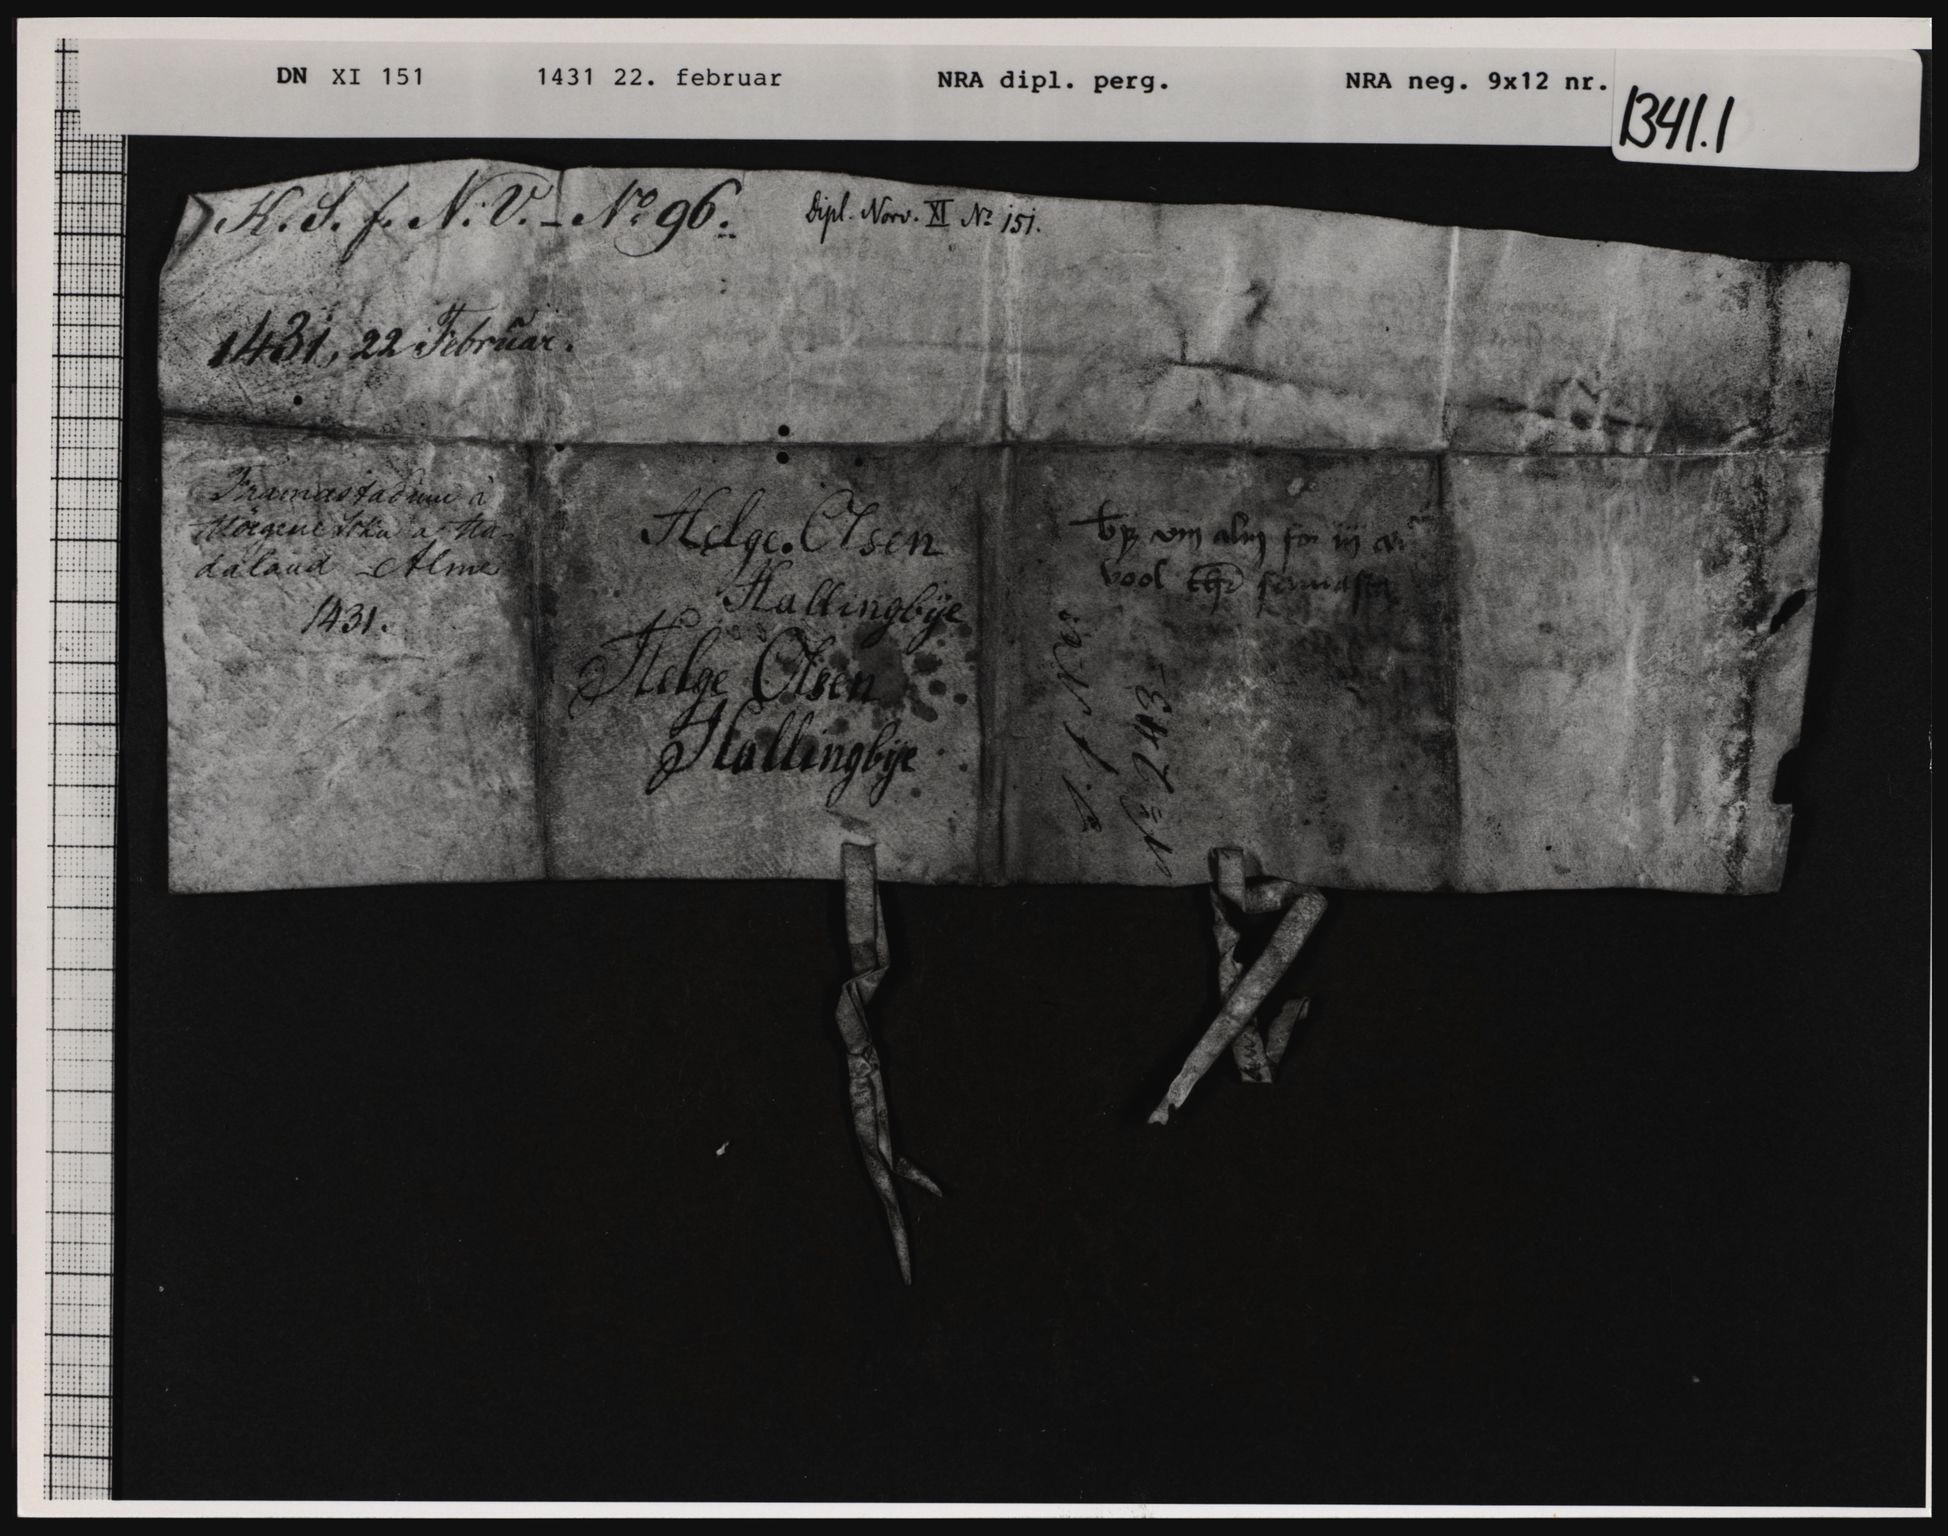 DN XI 151 1431 22. februar NRA dipl. perg. NRA neg. 9x12 nr. 1341.1
K. S. f. N. V. – No 96.
Dipl. Norv. XI No 151.
1431, 22 Februar.
Framastadum a
a Ha-
daland – Alme
1431.
Helge. Olsen
Hallingbÿe
Helge Olsen
Hallingbÿe
alm
vool
No 243